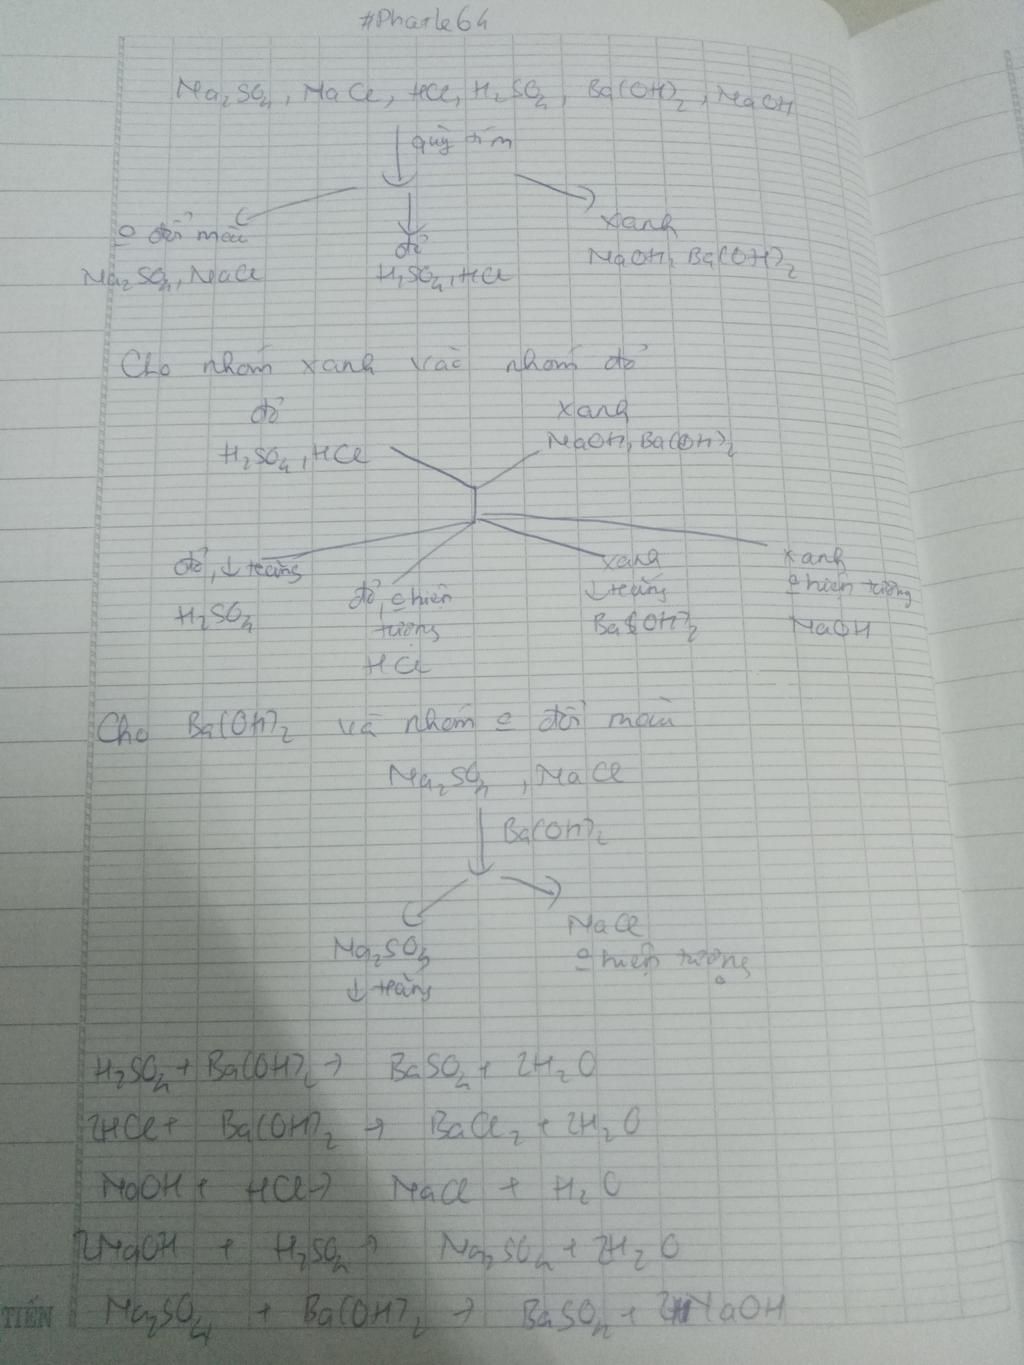 #Phatle64
Na2SO4, NaCl, HCl, H2SO4, Ba(OH)2, NaOH
quỳ tím
o đổi màu
đỏ
xanh
Na2SO4, NaCl
H2SO4, HCl
NaOH, Ba(OH)2
Cho nhóm xanh vào nhóm đỏ
đỏ
xanh
H2SO4, HCl
NaOH, Ba(OH)2
đỏ, ↓ trắng
H2SO4
đỏ, o hiện
tượng
HCl
xanh
↓ trắng
Ba(OH)2
xanh
o hiện tượng
NaOH
Cho Ba(OH)2 và nhóm o đổi màu
Na2SO4, NaCl
Ba(OH)2
Na2SO4
↓ trắng
NaCl
o hiện tượng
H2SO4 + Ba(OH)2 → BaSO4 + 2H2O
2HCl + Ba(OH)2 → BaCl2 + 2H2O
NaOH + HCl → NaCl + H2O
2NaOH + H2SO4 → Na2SO4 + 2H2O
Na2SO4 + Ba(OH)2 → BaSO4 + 2NaOH
TIẾN